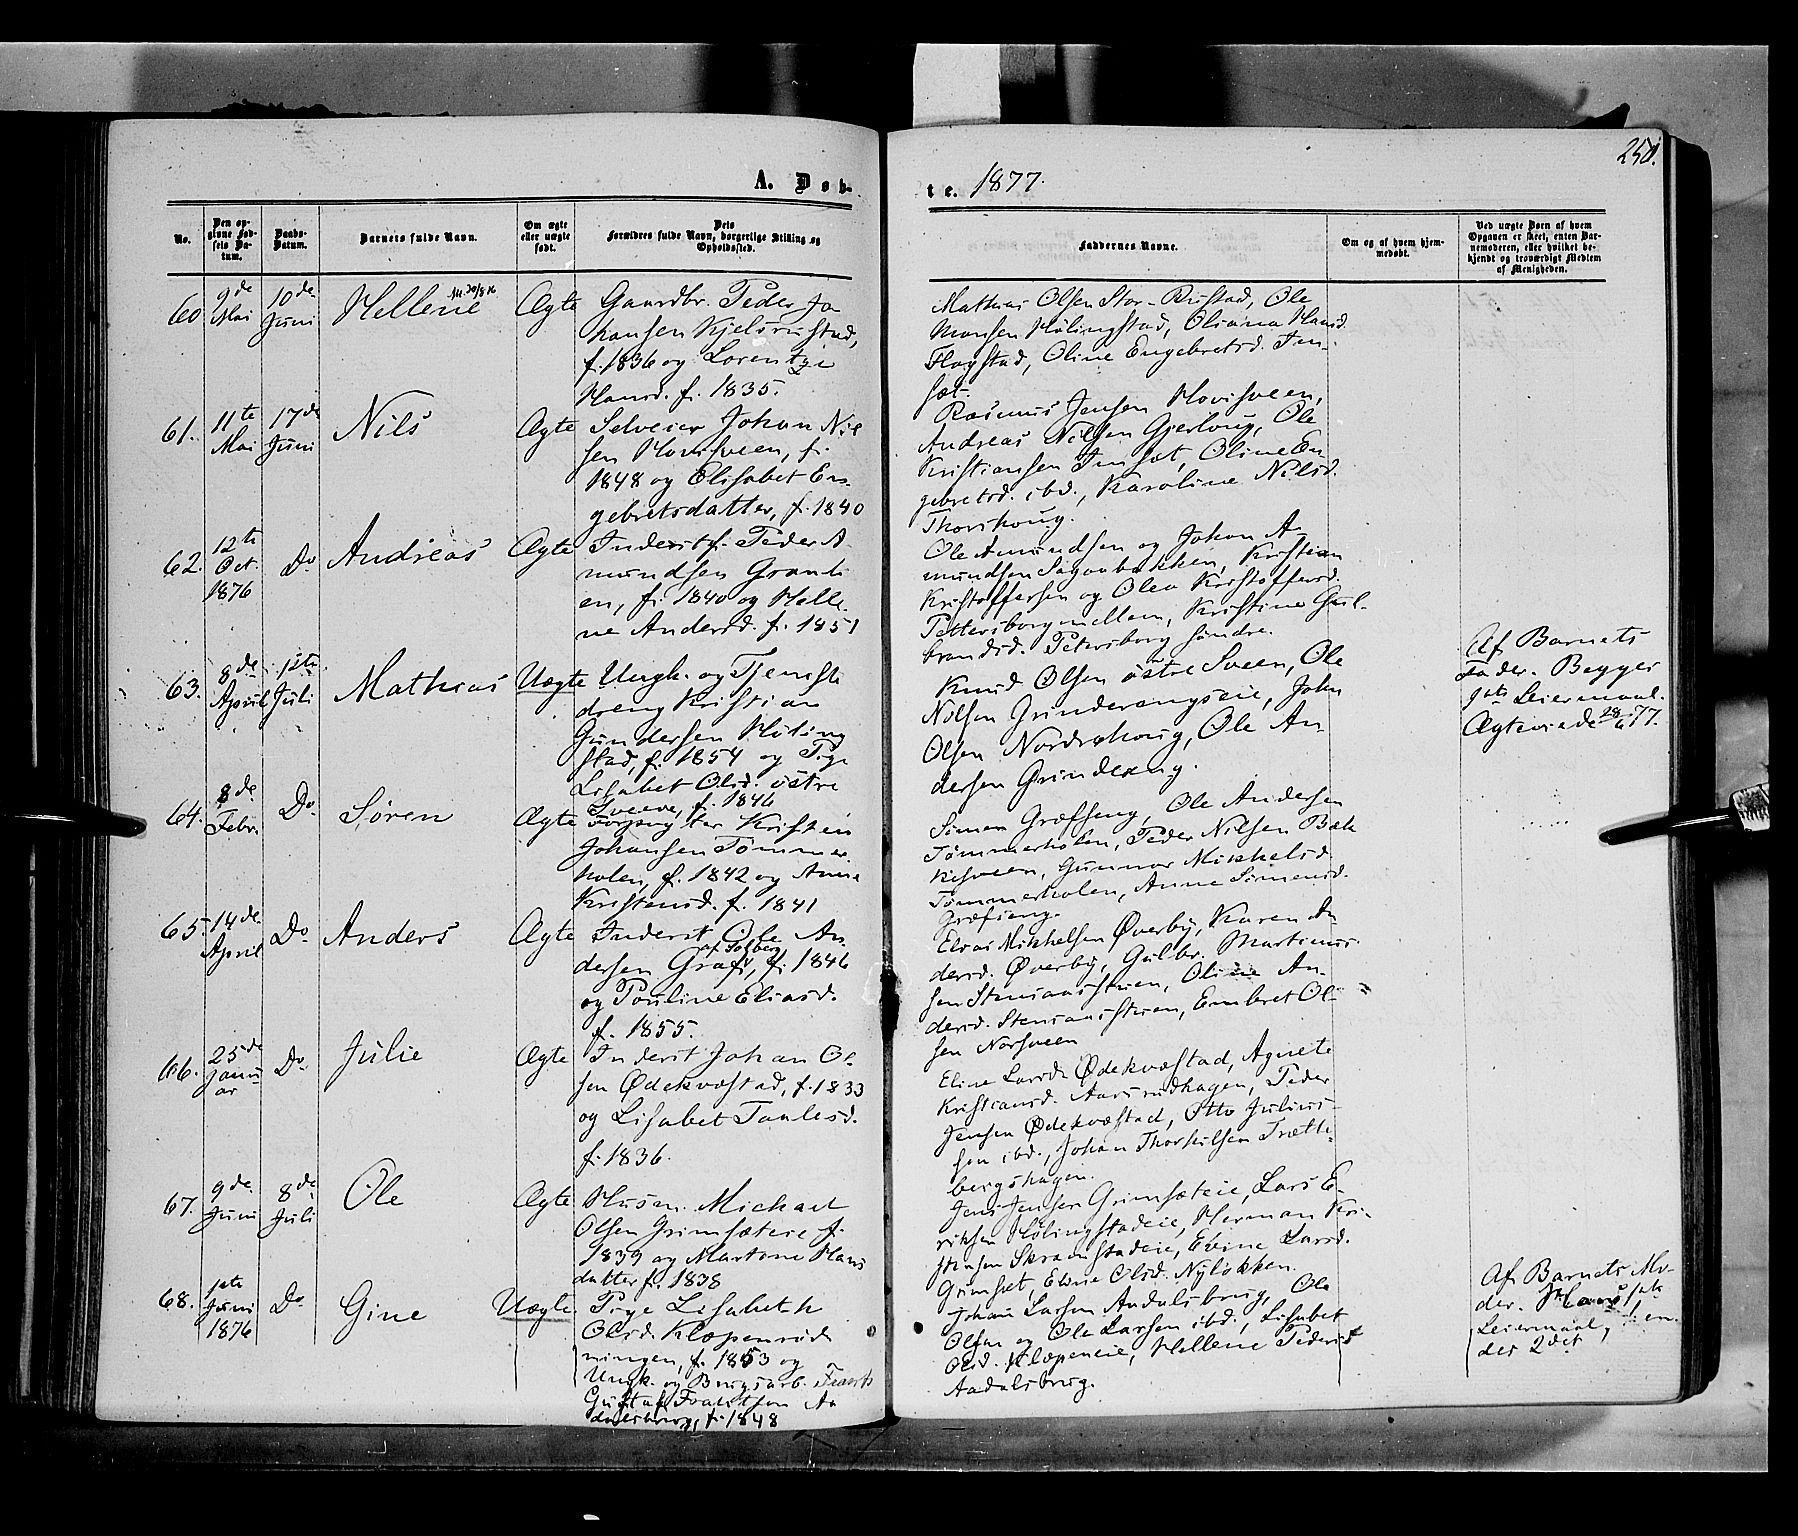 250.
A. Døb-
te. 1877.
No.
Den op-
givne Fød-
sels Da-
tum.
Daabs-
Datum.
Barnets fulde Navn.
Om ægte
eller uægte
født.
Dets
Forældres fulde Navn, borgerlige Stilling og
Opholdssted.
Faddernes Navne.
Om og af hvem hjem-
medøbt.
Ved uægte Børn af hvem
Opgaven er skeet, enten Bar-
nemoderen, eller hvilket be-
kjendt og troværdigt Medlem
af Menigheden.
60
9de
Mai
10de
Juni
Hellene
Ægte
Gaardbr. Peder Jo
hansen Kjelsrustad,
f. 1836 og Lorentze
Hansd. f. 1835.
Mathias Olsen Stor-Rustad, Ole
Monsen Hølingstad, Oliana Hansd.
Flagstad, Oline Engebretsd. Im-
sæt.
61.
11te
Mai
17de
Juni
Nils
Ægte
Selveier Johan Nil
sen Hovisveen, f.
1848 og Elisabet En-
gebretsdatter, f. 1840
Rasmus Jensen Hovisveen,
Andreas Nilsen Gjerloug, Ole
Kristiansen Imset, Oline En
gebretsd. ibd., Karoline Nilsd.
Thorshoug.
62.
12te
Oct.
1876
Do
Andreas
Ægte
Inderst Peder A-
mundsen Granli
en, f. 1840 og Helle-
ne Andersd. f. 1851
Ole Amundsen og Johan A-
mundsen Sagaabakken, Kristian
Kristoffersen og Olea Kristoffersd.
Pettersborg mellem, Kristine Gul-
brandsd. Petersborg søndre.
63.
8de
April
1ste
Juli
Mathias
Uægte
Ungk. og Tjeneste
dreng Kristian
Gundersen Høling
stad, f. 1854 og Pige
Lisabet Olsd. østre
Sveen, f. 1846
Knud Olsen østre Sveen, Ole
Nilsen Grinderengseie, John
Olsen Nordrehoug, Ole An-
dersen Grindereng.
Af Barnets
Fader. Begges
1ste Leiermaal.
Ægteviede 28/6 77.
64.
8de
Febr.
Do
Søren
Ægte
Forpagter Kristen
Johansen Tømmer
holen, f. 1842 og Anne
Kristensd. f. 1841
Simen Græfseng, Ole Andersen
Tømmerholen, Peder Nilsen Bæk
kesveen, Gunnor Mikkelsd.
Tømmerholen, Anne Simensd.
Græfseng.
65.
14de
April
Do
Anders
Ægte
Inderst Ole An-
af Solberg
dersen Græfs, f. 1846
og Pouline Eliasd.
f. 1855.
Elias Mikkelsen Øverby, Karen An-
dersd. Øverby, Gulbr. Martinus-
sen Stensaasstuen, Oline An-
dersd. Stensaasstuen, Embret Ol-
sen Norsveen
66.
25de
Janu-
ar
Do
Julie
Ægte
Inderst Johan Ol
sen Ødekvæstad, f. 1833
og Lisabet Paulesd.
f. 1836.
Eline Larsd. Ødekvæstad, Agnete
Kristiansd. Aarsrudhagen, Peder
Jensen Ødekvæstad, Otto Julius-
sen ibd., Johan Thorkilsen Trætte-
bergshagen.
67.
9de
Juni
8de
Juli
Ole
Ægte
Husm. Michael
Olsen Grimsæteie f.
1839 og Martone Hans
datter f. 1838
Jens Jensen Grimsæteie, Lars E-
riksen Hølingstadeie, Herman Kri-
stensen Skramstadeie, Eline Larsd.
Grimset, Eline Olsd. Nyløkken.
68.
1ste
Juni
1876
Do
Gine
Uægte
Pige Lisabeth
Olsd. Klæpenrød-
ningen, f. 1853 og
Ungk. og Brugsarb. Frants
Gustaf Frantsen Aa
dalsbrug, f. 1848
Johan Larsen Aadalsbrug, Ole
Olsen og Ole Larsen ibd., Lisabet
Olsd. Klæpeneie, Hellene Pedersd
Aadalsbrug.
Af Barnets Mo-
der. Hans 1ste
Leiermaal, hen-
des 2det